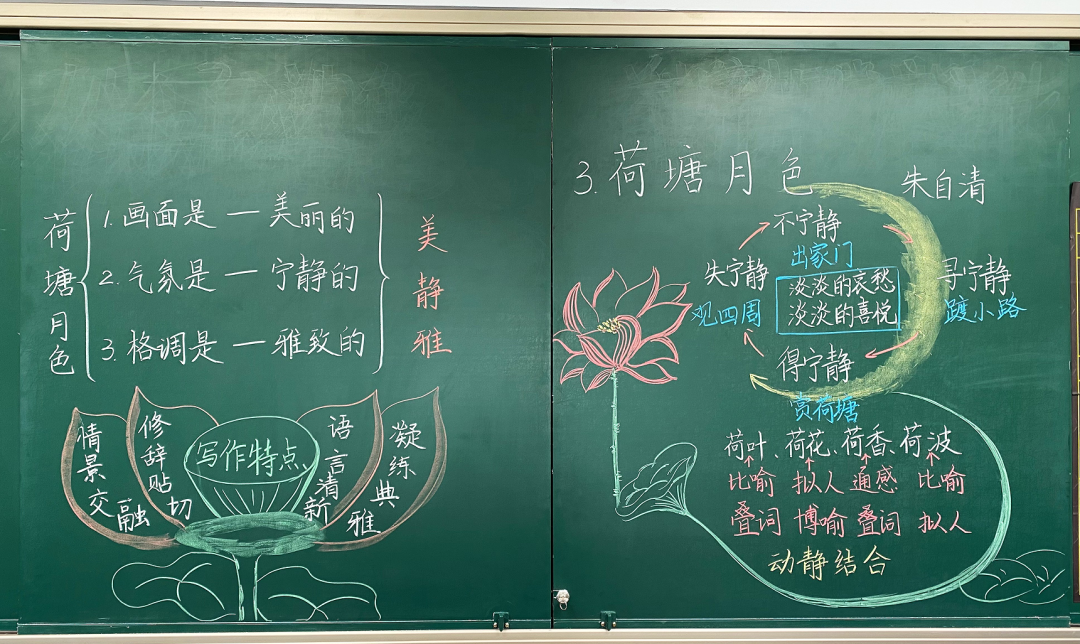 荷塘月色
1.画面是 — 美丽的
2.气氛是 — 宁静的
3.格调是 — 雅致的
美
静
雅
情景交融
修辞贴切
写作特点
语言清新
凝练典雅
3.荷塘月色
朱自清
不宁静
出家门
失宁静
观四周
淡淡的哀愁
淡淡的喜悦
寻宁静
踱小路
得宁静
赏荷塘
荷叶、荷花、荷香、荷波
比喻 拟人 通感 比喻
叠词 博喻 叠词 拟人
动静结合